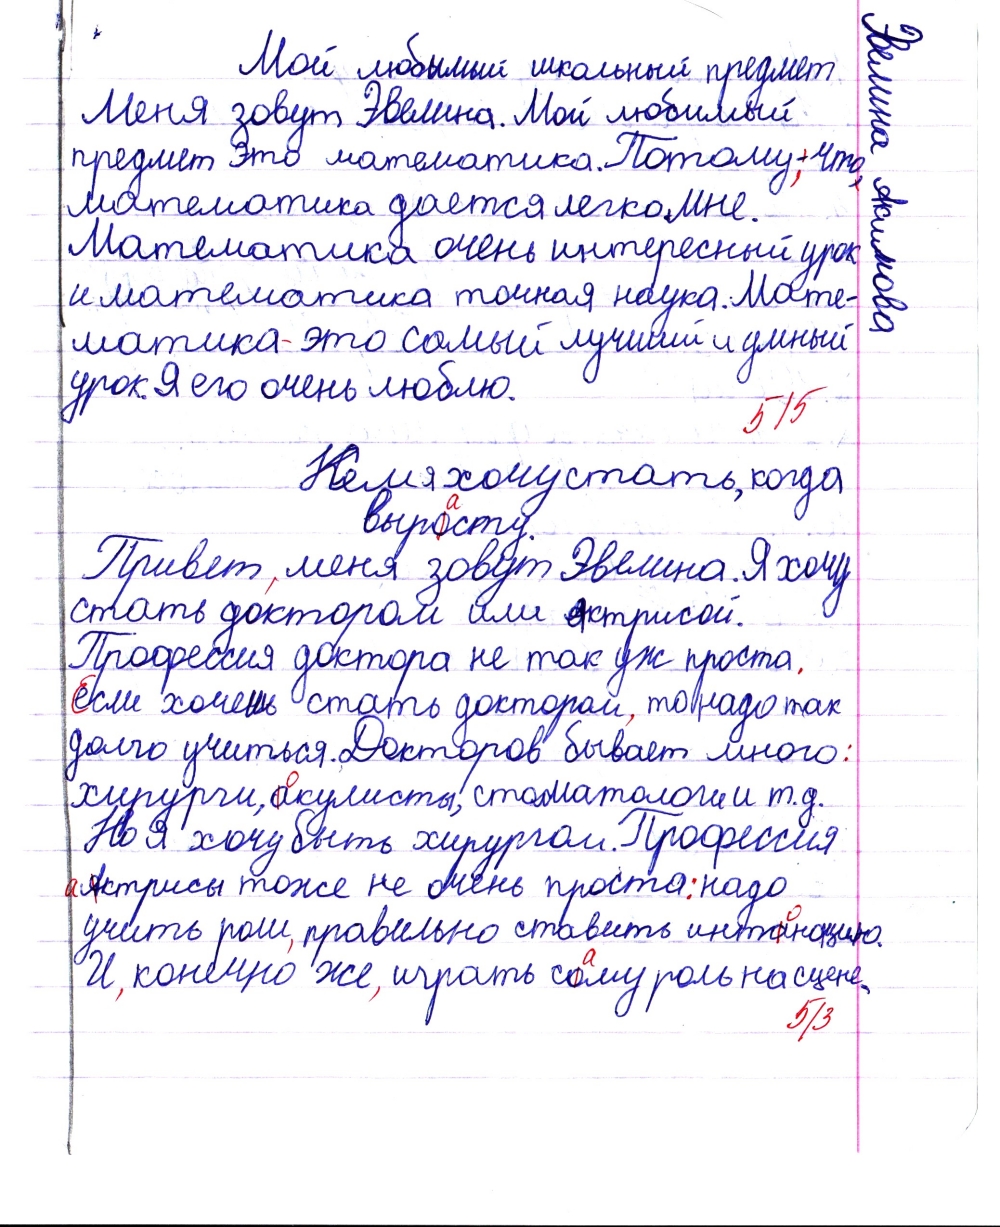 Мой любимый школьный предмет
Меня зовут Эвелина. Мой любимый
предмет это математика. Потому, что,
математика дается легко мне.
Математика очень интересный урок
и математика точная наука. Мате-
матика - это самый лучший и умный
урок. Я его очень люблю.
5/5
Кем я хочу стать, когда
вырасту.
Привет, меня зовут Эвелина. Я хочу
стать доктором или актрисой.
Профессия доктора не так уж проста.
Если хочешь стать доктором, то надо так
долго учиться. Докторов бывает много:
хирурги, окулисты, стоматологи и т.д.
Но я хочу быть хирургом. Профессия
актрисы тоже не очень проста: надо
учить роли, правильно ставить интонацию.
И, конечно же, играть саму роль на сцене.
5/3
Эвелина Акимова